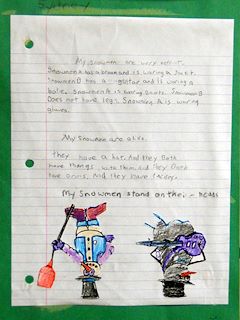 Sydney
My snowmen are very different.
Snowmen A has a broom and is. waring a Jacket.
Snowmen B has a guitar and is waring a
Snowmen A is waring Snowmen B
Does not have legs. Snowmen A is waring
gloves.
My Snowmen are alike.
They have a hat. And they Both
have things with them. And they Both
have arms. And they have faces.
My Snowmen stand on their heads